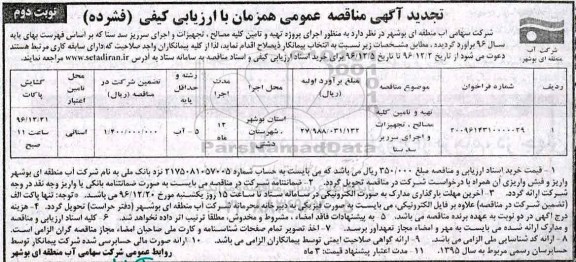 تجدید آگهی مناقصه عمومی همزمان با ارزیابی کیفی (فشرده)
نوبت دوم
شرکت آب منطقه ای بوشهر
شرکت سهامی آب منطقه ای بوشهر در نظر دارد به منظور اجرای پروژه تهیه و تامین کلیه مصالح ، تجهیزات و اجرای سرریز سد سنا که بر اساس فهرست بهای پایه
سال ۹۶ برآورد گردیده ، مطابق مشخصات زیر نسبت به انتخاب پیمانکار ذیصلاح اقدام نماید، لذا از کلیه پیمانکاران واجد صلاحیت که دارای سابقه کاری مرتبط هستند
دعوت می شود از تاریخ ۹۶/۱۲/۲ تا ۹۶/۱۲/۵ برای خرید اسناد ارزیابی کیفی و اسناد مناقصه به سامانه ستاد به آدرس www.setadiran.ir مراجعه نمایند.
ردیف
شماره فراخوان
موضوع مناقصه
مبلغ برآورد اولیه (ریال)
محل اجرا
مدت اجرا
رشته و حداقل پایه
تضمین شرکت در مناقصه (ریال)
محل تامین اعتبار
گشایش پاکات
۱
۲۰۰۹۶۱۴۳۱۰۰۰۰۰۲۹
تهیه و تامین کلیه مصالح ، تجهیزات و اجرای سرریز سد سنا
۲۷/۹۸۸/۰۳۱/۱۳۲
استان بوشهر ، شهرستان دشتی
۱۲ ماه
۵ - آب
۱/۴۰۰/۰۰۰/۰۰۰
استانی
۹۶/۱۲/۲۱ ساعت ۱۱ صبح
۱ - قیمت خرید اسناد ارزیابی و مناقصه مبلغ ۳۵۰/۰۰۰ ریال می باشد که می بایست به حساب شماره ۲۱۷۵۰۸۱۰۵۷۰۰۵ نزد بانک ملی به نام شرکت آب منطقه ای بوشهر
واریز و فیش واریزی آن همراه با درخواست شرکت در مناقصه تحویل گردد. ۲ - ضمانتنامه شرکت در مناقصه می بایست به صورت ضمانتنامه بانکی یا واریز وجه نقد در وجه
شرکت ارائه گردد. ۳ - آخرین مهلت بارگذاری مدارک به صورت الکترونیکی در سامانه ستاد تا ساعت ۱۵ روز یکشنبه مورخ ۹۶/۱۲/۲۰ می باشد. «توجه: تنها پاکت الف
(تضمین شرکت در مناقصه) علاوه بر فایل الکترونیکی، می بایست به صورت فیزیکی به دبیرخانه محرمانه شرکت آب منطقه ای بوشهر (دفتر حراست) تحویل گردد. ۴ - هزینه
درج آگهی در دو نوبت به عهده برنده مناقصه می باشد. ۵ - به پیشنهادات فاقد امضاء ، مشروط و مخدوش، مطلقا ترتیب اثر داده نخواهد شد. ۶ - کلیه اسناد ارزیابی و مناقصه
و مدارک ارائه شده می بایست به مهر و امضاء مجاز تعهدآور برسد. ۷ - اخذ تصویر تمام صفحات شناسنامه و کارت ملی صاحبان امضاء مجاز مناقصه گران الزامی است.
۸ - ارائه کد شناسایی ملی الزامی می باشد. ۹ - ارائه گواهی صلاحیت ایمنی توسط پیمانکاران الزامی می باشد. ۱۰ - ارائه صورت مالی حسابرسی شده شرکت پیمانکار توسط
حسابرسان رسمی مربوط به سال ۱۳۹۵. ۱۱ - مدت اعتبار پیشنهاد قیمت: ۳ ماه
روابط عمومی شرکت سهامی آب منطقه ای بوشهر